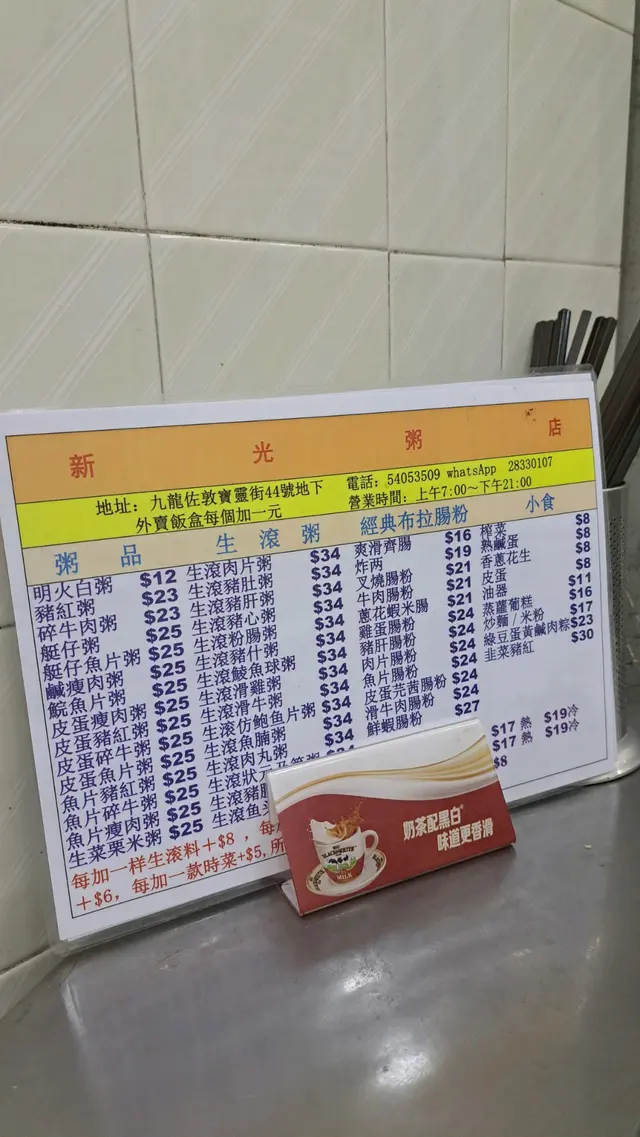 新 光 粥 店
地址：九龍佐敦寶靈街44號地下
外賣飯盒每個加一元
電話：54053509 whatsApp 28330107
營業時間：上午7:00～下午21:00
粥 品
明火白粥 $12
豬紅粥 $23
碎牛肉粥 $23
艇仔粥 $25
艇仔魚片粥 $25
鹹瘦肉粥 $25
鯇魚片粥 $25
皮蛋瘦肉粥 $25
皮蛋豬紅粥 $25
皮蛋碎牛粥 $25
皮蛋魚片粥 $25
魚片豬紅粥 $25
魚片碎牛粥 $25
魚片瘦肉粥 $25
生菜粟米粥 $25
生 滾 粥
生滾肉片粥 $34
生滾豬肚粥 $34
生滾豬肝粥 $34
生滾豬心粥 $34
生滾粉腸粥 $34
生滾豬什粥 $34
生滾鯪魚球粥 $34
生滾滑雞粥 $34
生滾滑牛粥 $34
生滾仿鮑魚片粥 $34
生滾魚腩粥 $34
生滾肉丸粥
生滾狀元及第粥
生滾豬
生滾魚
經典布拉腸粉
爽滑齊腸 $16
炸両 $19
叉燒腸粉 $21
牛肉腸粉 $21
蔥花蝦米腸 $21
雞蛋腸粉 $24
豬肝腸粉 $24
肉片腸粉 $24
魚片腸粉 $24
皮蛋芫茜腸粉 $24
滑牛肉腸粉 $24
鮮蝦腸粉 $27
小食
榨菜 $8
熟鹹蛋 $8
香蔥花生 $8
皮蛋 $8
油器 $11
蒸蘿蔔糕 $16
炒麵／米粉 $17
綠豆蛋黃鹹肉粽 $23
韭菜豬紅 $30
$17 熱 $19冷
$17 熱 $19冷
$8
每加一樣生滾料＋$8，每
＋$6，每加一款時菜+$5,所
奶茶配黑白®
味道更香滑
BLACK&WHITE
MILK